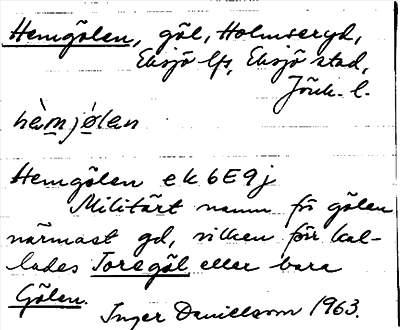 Hemgölen, göl, Holmseryd,
Eksjö lfs, Eksjö stad,
Jönk. l.
hèmjö́lan
Hemgölen ek 6E9j
Militärt namn för gölen
närmast gd, vilken förr kal-
lades Toregöl eller bara
Gölen.
Inger Danielsson 1963.